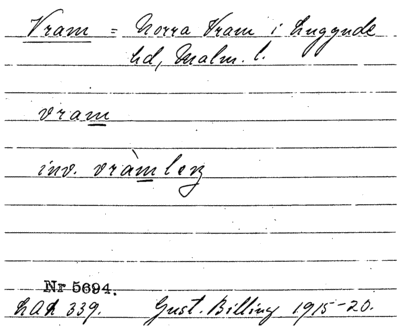 Vram = Norra Vram i Luggude
hd, Malm. l.
vram
inv. vràmleŋ
Nr 5694.
LAA 339. Gust. Billing 1915-20.